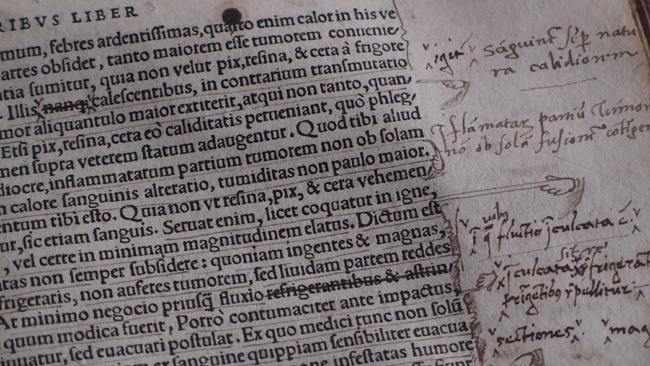 RIBVS LIBER
mum, febres ardentissimas, quanto enim calor in his ve
artes obsidet, tanto maiorem esse tumorem conuenie
tia sumitur, quia non velut pix, resina, & cera à frigore
. Illis nanq; calescentibus, in contrarium transmutatio
mor aliquantulo maior extiterit, atqui non tanto, quan-
Etsi pix, resina, cera eò caliditatis perueniant, quò phleg-
men supra veterem statum adaugentur. Quod tibi aliud
diocre, inflammatarum partium tumorem non ob solam
calore sanguinis alteratio, tumiditas non paulo maior.
entum tibi esto. Quia non vt resina, pix, & cera vehemen
tur, sic etiam sanguis. Seruat enim, licet coquatur in igne,
, vel certe in minimam magnitudinem elatus. Dictum est
tas non semper subsidere: quoniam ingentes & magnas,
frigeraris, non auferes tumorem, sed liuidam partem reddes
At minimo negocio priusq̃ fluxio refrigerantibus & astrin
quum modica fuerit, Porrò contumaciter ante impactus,
uuatur, sed euacuari postulat. Ex quo medici tunc non solũ
ex sanguine quippiam sensibiliter euacua
one infestatas humore
igitur
Sanguine semp natu
ra calidionem
Inflãmatar partiũ tumor
nõ ob solã fusionem
fluxio inculcata
inculcata
pellitur
sectiones
mag